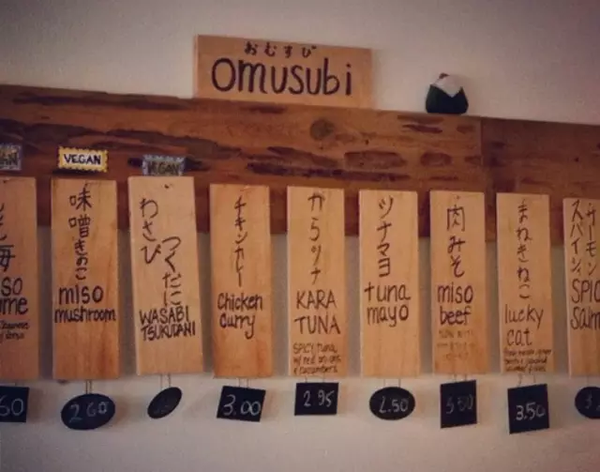 おむすび
omusubi
VEGAN
味噌きのこ
miso
mushroom
2.60
わさび
つくだに
WASABI
TSUKUDANI
チキンカレー
Chicken
curry
3.00
からツナ
KARA
TUNA
SPICY tuna,
w/ red onions
+ cucumbers
2.95
ツナマヨ
tuna
mayo
2.50
肉みそ
miso
beef
3.50
まねきねこ
lucky
cat
3.50
サーモン
スパイシ